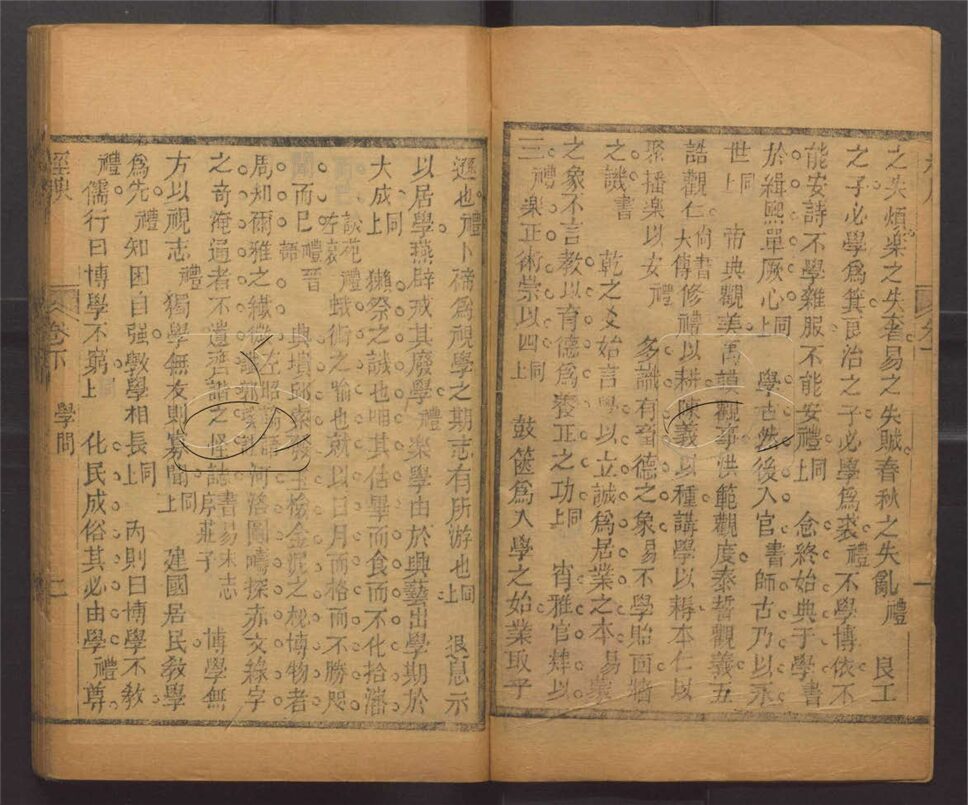 之失煩樂之失奢易之失賊春秋之失亂禮 良工
之子必學爲箕良冶之子必學爲裘禮 不學博依不
能安詩不學雜服不能安禮上同 念終始典于學書
於緝熙單厥心上同 學古然後入官書師古乃以永
世上同 帝典觀美禹謨觀事洪範觀度泰誓觀義五
誥觀仁尚書大傳修禮以耕陳義以種講學以耨本仁以
聚播樂以安禮 多識有畜德之象易不學貽面牆
之譏書 乾之爻始言學以立誠爲居業之本易蒙
之象不言教以育德爲養正之功上同 宵雅官肄以
三禮樂正術崇以四上同 鼓篋爲入學之始業取乎
遜也禮卜禘爲視學之期志有所游也上同 退息示
以居學燕辟戒其廢學禮 樂學由於興藝出學期於
大成上同 獺祭之誠也呻其佔畢而食而不化拾瀋
談苑禮左哀 蛾術之喻也就以日月而格而不勝咫
聞而已禮晉語 典墳邱索發玉檢金泥之秘博物者
周知爾雅之纖微左昭 河洛圖疇探赤文綠字
之奇淹通者不遺齊諧之怪誌書易宋志序莊子 博學無
方以視志禮 獨學無友則寡聞上同 建國居民教學
爲先禮 知困自强教學相長上同 內則曰博學不教
禮儒行曰博學不窮上同 化民成俗其必由學禮 尊
經典
卷下
學問
二